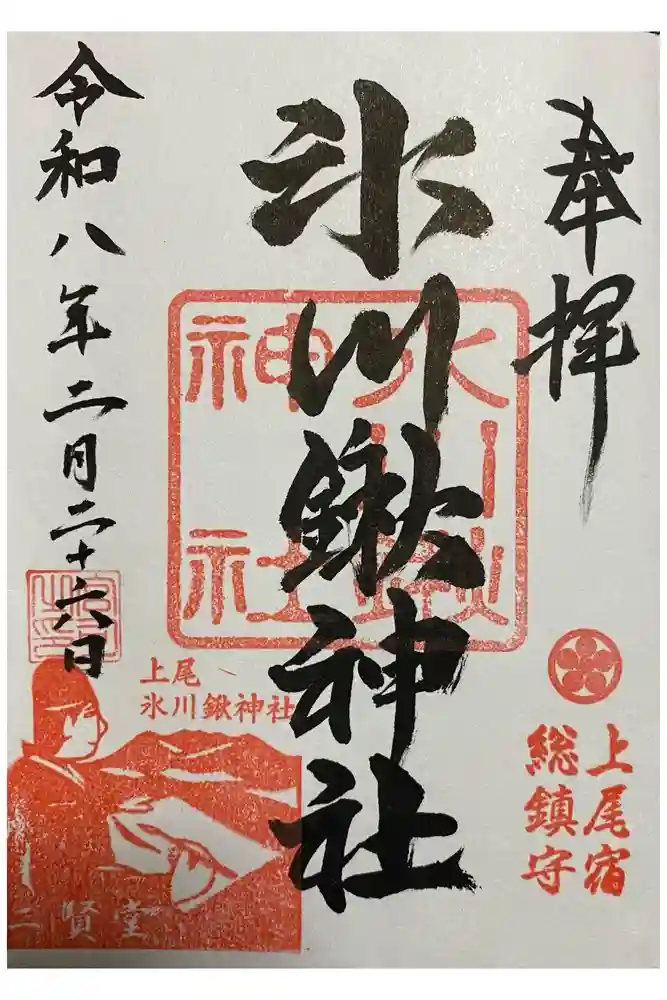 奉拝
上尾宿
総鎮守
氷川鍬神社
上尾
氷川鍬神社
二賢堂
令和八年二月二十六日